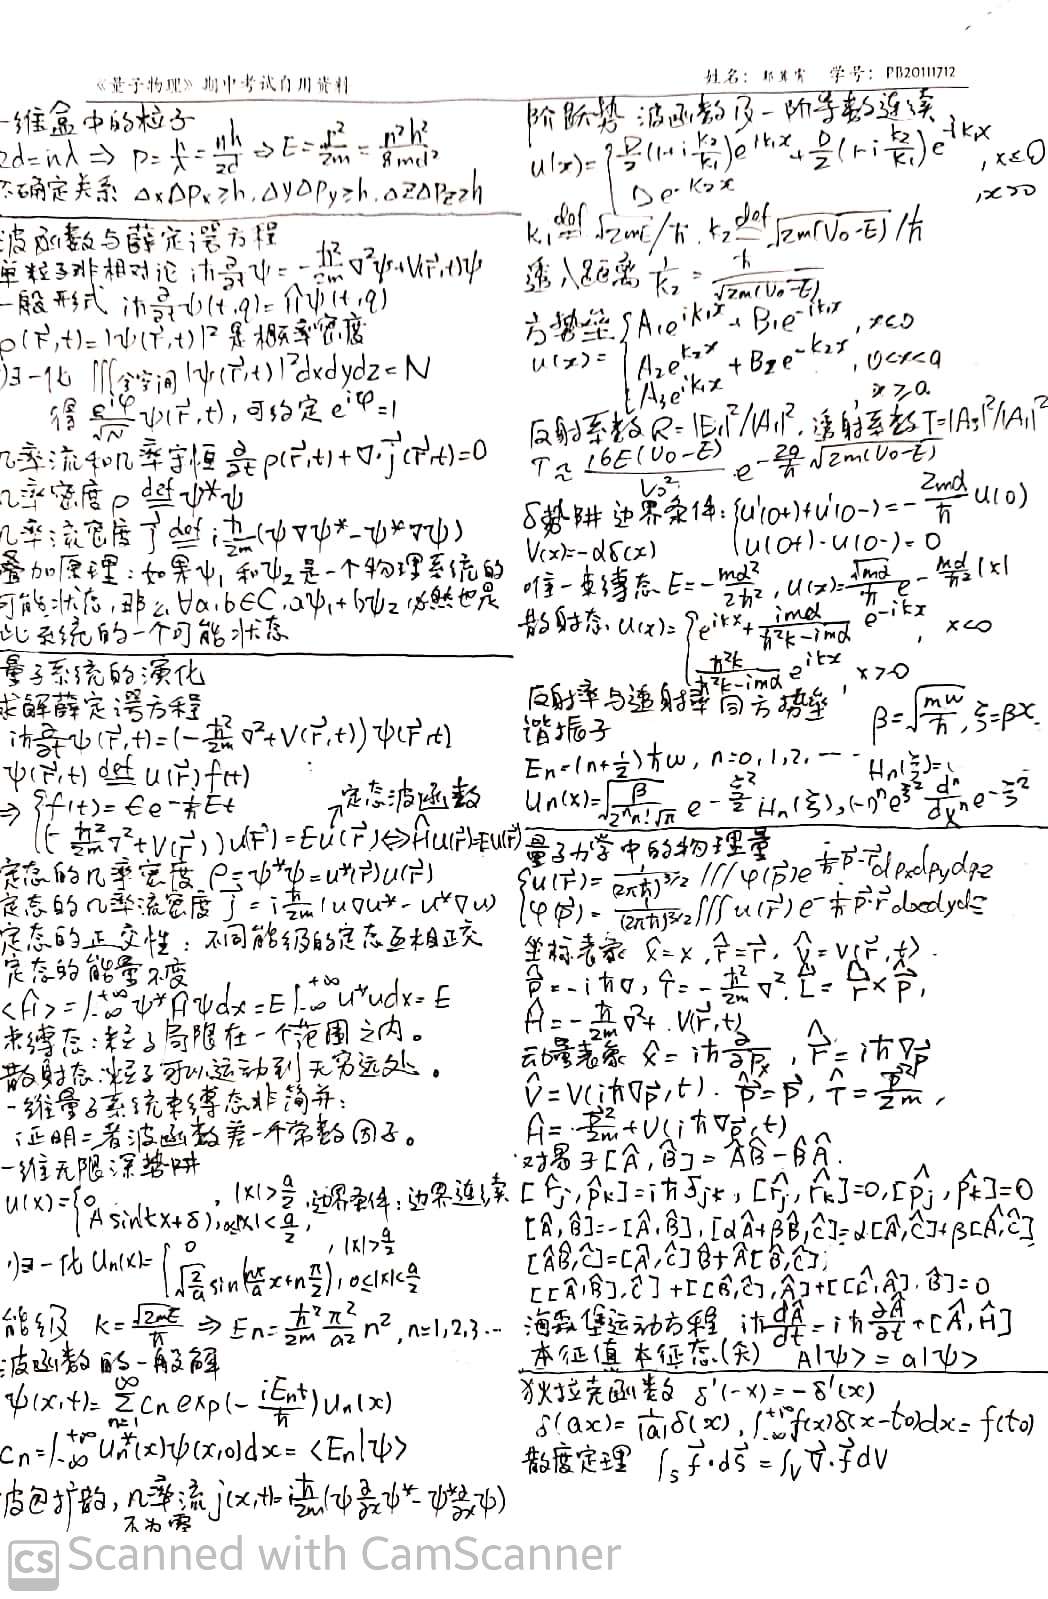 《量子物理》期中考试自用资料
姓名: 学号: PB20111712
一维盒中的粒子
2d=nλ ⇒ p=h/λ=nh/2d ⇒ E=p²/2m=n²h²/8md²
不确定关系 ΔxΔPx≥h, ΔyΔPy≥h, ΔzΔPz≥h
波函数与薛定谔方程
单粒子非相对论 iħ∂/∂t ψ=-ħ²/2m ∇²ψ+V(r⃗,t)ψ
一般形式 iħ∂/∂t ψ(t,q)=Ĥψ(t,q)
ρ(r⃗,t)=|ψ(r⃗,t)|² 是概率密度
归一化 ∭全空间 |ψ(r⃗,t)|²dxdydz=N
得 e^{iφ}/√N ψ(r⃗,t), 可约定 e^{iφ}=1
几率流和几率守恒 ∂/∂t ρ(r⃗,t)+∇·j⃗(r⃗,t)=0
几率密度 ρ def= ψ*ψ
几率流密度 j⃗ def= iħ/2m(ψ∇ψ*-ψ*∇ψ)
叠加原理:如果ψ₁和ψ₂是一个物理系统的
可能状态,那么∀a,b∈C,aψ₁+bψ₂必然也是
此系统的一个可能状态
量子系统的演化
求解薛定谔方程
iħ∂/∂t ψ(r⃗,t)=(-ħ²/2m ∇²+V(r⃗,t))ψ(r⃗,t)
ψ(r⃗,t) def= u(r⃗)f(t)
定态波函数
⇒ {f(t)=e^{-i/ħ Et}
(-ħ²/2m ∇²+V(r⃗))u(r⃗)=Eu(r⃗)⇔Ĥu(r⃗)=Eu(r⃗)
定态的几率密度 ρ=ψ*ψ=u*(r⃗)u(r⃗)
定态的几率流密度 j⃗=iħ/2m(u∇u*-u*∇u)
定态的正交性:不同能级的定态互相正交
定态的能量不变
<Ĥ>=∫_{-∞}^{+∞}ψ*Ĥψdx=E∫_{-∞}^{+∞}u*udx=E
束缚态:粒子局限在一个范围之内。
散射态:粒子可以运动到无穷远处。
一维量子系统束缚态非简并:
证明二者波函数差一个常数因子。
一维无限深势阱
u(x)={0, |x|>a/2, 边界条件:边界连续
A sin(kx+δ), 0≤|x|<a/2,
归一化 Un(x)={0, |x|>a/2
√(2/a) sin(nπ/a x+nπ/2), 0≤|x|<a/2
能级 k=√(2mE)/ħ ⇒ En=ħ²/2m π²/a² n², n=1,2,3...
波函数的一般解
ψ(x,t)=Σ_{n=1}^{∞} Cn exp(-iEnt/ħ)Un(x)
Cn=∫_{-∞}^{+∞}Un*(x)ψ(x,0)dx=<En|ψ>
波包扩散,几率流 j(x,t)=iħ/2m(ψ∂/∂x ψ*-ψ*∂/∂x ψ)
不为零
阶跃势 波函数及一阶导数连续
u(x)={D/2(1+i k₂/k₁)e^{ik₁x}+D/2(1-i k₂/k₁)e^{-ik₁x}, x≤0
De^{-k₂x}, x>0
k₁ def= √2mE/ħ, k₂ def= √2m(V₀-E)/ħ
透入距离 1/k₂=ħ/√2m(V₀-E)
方势垒 {A₁e^{ik₁x}+B₁e^{-ik₁x}, x≤0
u(x)= A₂e^{k₂x}+B₂e^{-k₂x}, 0<x<a
A₃e^{ik₁x}, x≥a
反射系数R=|B₁|²/|A₁|², 透射系数T=|A₃|²/|A₁|²
T≈16E(V₀-E)/V₀² e^{-2a/ħ √2m(V₀-E)}
δ势阱 边界条件:{u'(0+)+u'(0-)=-2mα/ħ u(0)
V(x)=-αδ(x) u(0+)-u(0-)=0
唯一束缚态 E=-mα²/2ħ², u(x)=√mα/ħ e^{-mα/ħ²|x|}
散射态, u(x)={e^{ikx}+imα/(ħ²k-imα) e^{-ikx}, x<0
ħ²k/(ħ²k-imα) e^{ikx}, x>0
反射率与透射率同方势垒
谐振子 β=√(mw/ħ), ξ=βx.
En=(n+1/2)ħw, n=0,1,2,... Hn(ξ)=
Un(x)=√(β/2ⁿn!√π) e^{-ξ²/2} Hn(ξ), (-1)ⁿe^{ξ²} dⁿ/dxⁿ e^{-ξ²}
量子力学中的物理量
{u(r⃗)=1/(2πħ)^{3/2} ∭φ(p⃗)e^{i/ħ p⃗·r⃗}dpxdpydpz
φ(p⃗)=1/(2πħ)^{3/2} ∭u(r⃗)e^{-i/ħ p⃗·r⃗}dxdydz
坐标表象 x̂=x, r̂=r⃗, V̂=V(r⃗,t).
p̂=-iħ∇, T̂=-ħ²/2m ∇². L̂=r̂×p̂,
Ĥ=-ħ/2m ∇²+V(r⃗,t)
动量表象 x̂=iħ∂/∂px, r̂=iħ∇p⃗
V̂=V(iħ∇p⃗,t). p̂=p⃗, T̂=p²/2m,
Ĥ=p²/2m+V(iħ∇p⃗,t)
对易子[Â,B̂]=ÂB̂-B̂Â.
[r̂j,p̂k]=iħδjk, [r̂j,r̂k]=0,[p̂j,p̂k]=0
[Â,B̂]=-[Â,B̂], [αÂ+βB̂,Ĉ]=α[Â,Ĉ]+β[Â,Ĉ]
[ÂB̂,Ĉ]=[Â,Ĉ]B̂+Â[B̂,Ĉ];
[[Â,B̂],Ĉ]+[[B̂,Ĉ],Â]+[[Ĉ,Â],B̂]=0
海森堡运动方程 iħdÂ/dt=iħ∂Â/∂t+[Â,Ĥ]
本征值 本征态.(矢) A|ψ>=a|ψ>
狄拉克函数 δ'(-x)=-δ'(x)
δ(ax)=1/|a|δ(x), ∫_{-∞}^{+∞}f(x)δ(x-t₀)dx=f(t₀)
散度定理 ∫_S f⃗·ds⃗=∫_V ∇·f⃗dV
CS Scanned with CamScanner